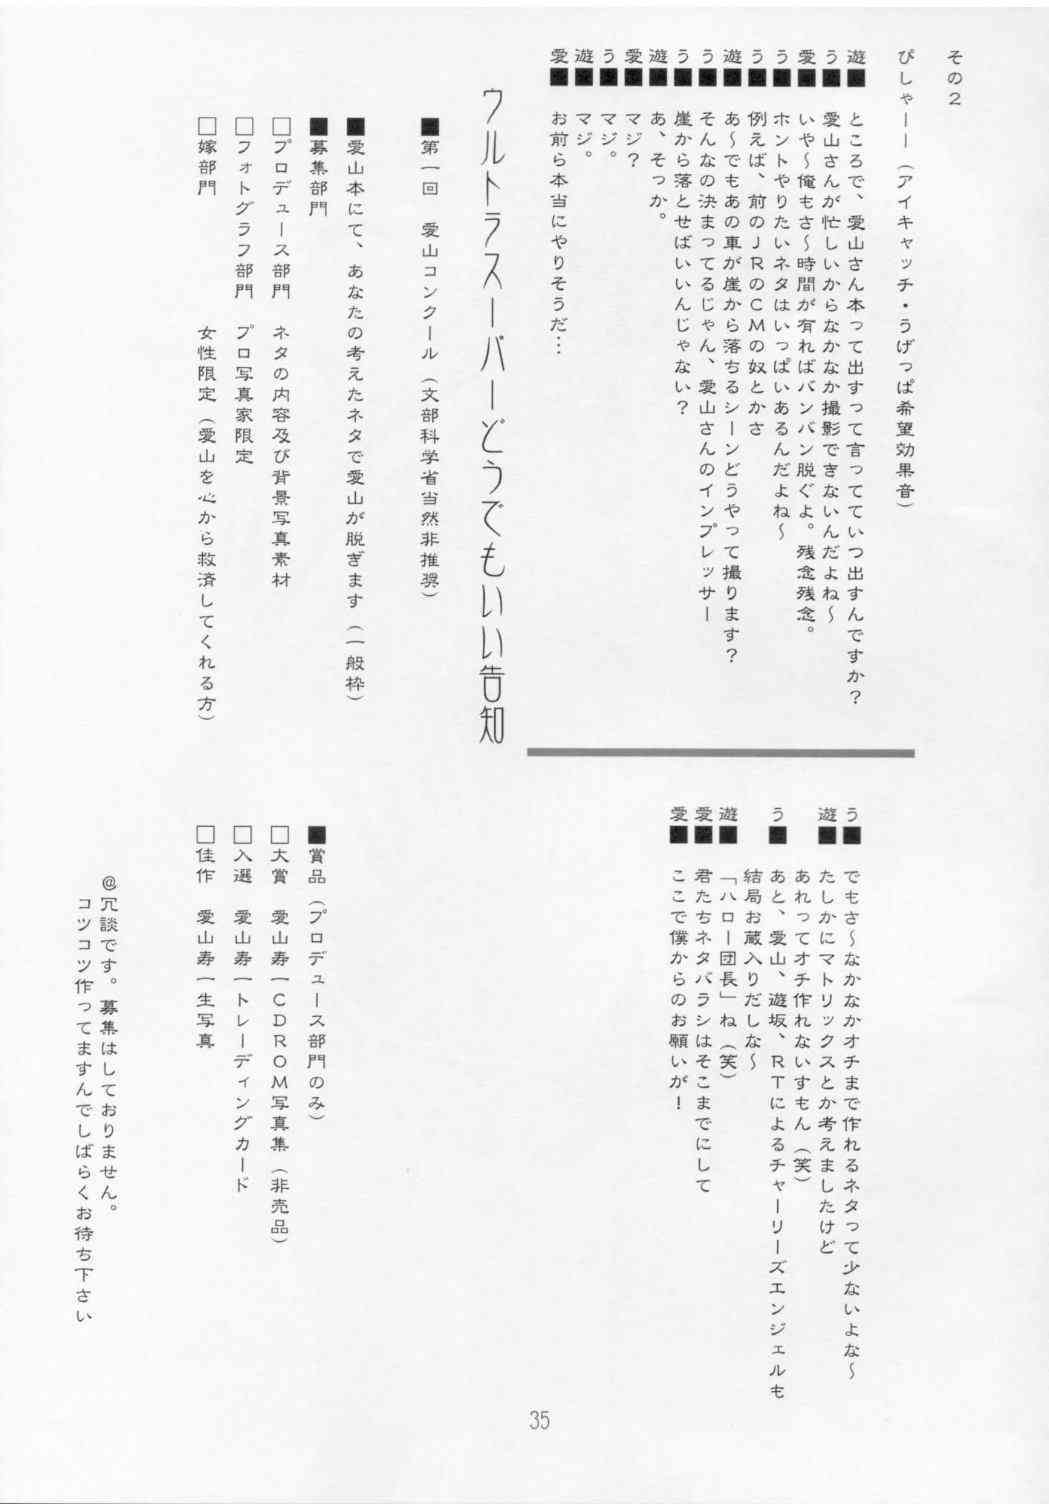 その２
ぴしゃーー（アイキャッチ・うげっぱ希望効果音）
遊■　ところで、愛山さん本って出すって言ってていつ出すんですか？
う■　愛山さんが忙しいからなかなか撮影できないんだよね～
愛■　いや～俺もさ～時間が有ればバンバン脱ぐよ。残念残念。
う■　ホントやりたいネタはいっぱいあるんだよね～
う■　例えば、前のＪＲのＣＭの奴とかさ
遊■　あ～でもあの車が崖から落ちるシーンどうやって撮ります？
う■　そんなの決まってるじゃん、愛山さんのインプレッサー
う■　崖から落とせばいいんじゃない？
遊■　あ、そっか。
愛■　マジ？
う■　マジ。
遊■　マジ。
愛■　お前ら本当にやりそうだ…
う■　でもさ～なかなかオチまで作れるネタって少ないよな～
遊■　たしかにマトリックスとか考えましたけど
あれってオチ作れないすもん（笑）
う■　あと、愛山、遊坂、ＲＴによるチャーリーズエンジェルも
結局お蔵入りだしな～
遊■　「ハロー団長」ね（笑）
愛■　君たちネタバラシはそこまでにして
愛■　ここで僕からのお願いが！
ウルトラスーパーどうでもいい告知
■第一回　愛山コンクール（文部科学省当然非推奨）
■愛山本にて、あなたの考えたネタで愛山が脱ぎます（一般枠）
■募集部門
□プロデュース部門　ネタの内容及び背景写真素材
□フォトグラフ部門　プロ写真家限定
□嫁部門　女性限定（愛山を心から救済してくれる方）
■賞品（プロデュース部門のみ）
□大賞　愛山寿一ＣＤＲＯＭ写真集（非売品）
□入選　愛山寿一トレーディングカード
□佳作　愛山寿一生写真
＠冗談です。募集はしておりません。
コツコツ作ってますんでしばらくお待ち下さい
35